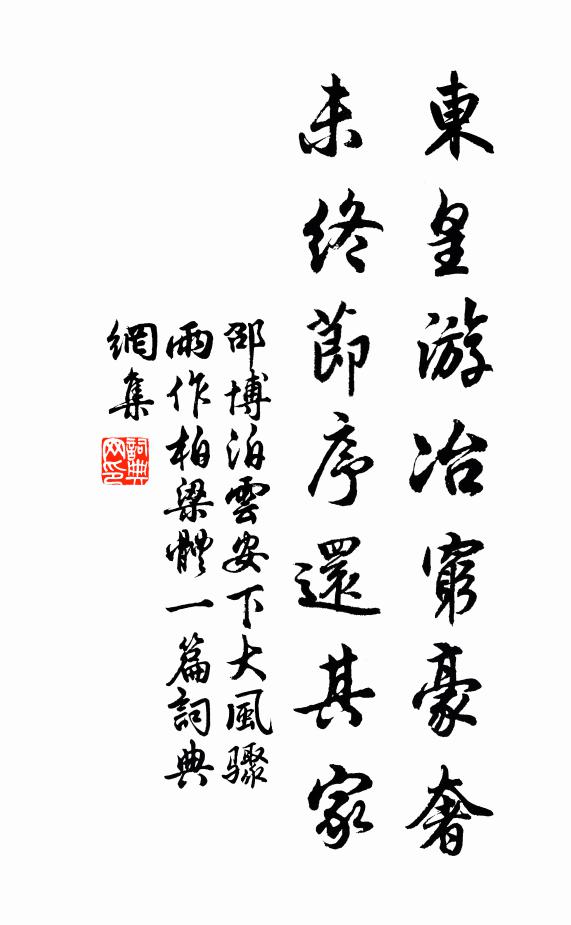 東皇游冶窮豪奢
未終節序還其家
邵博泊雲安下大風驟
雨作柏梁體一篇詞典
網集
詞典網印